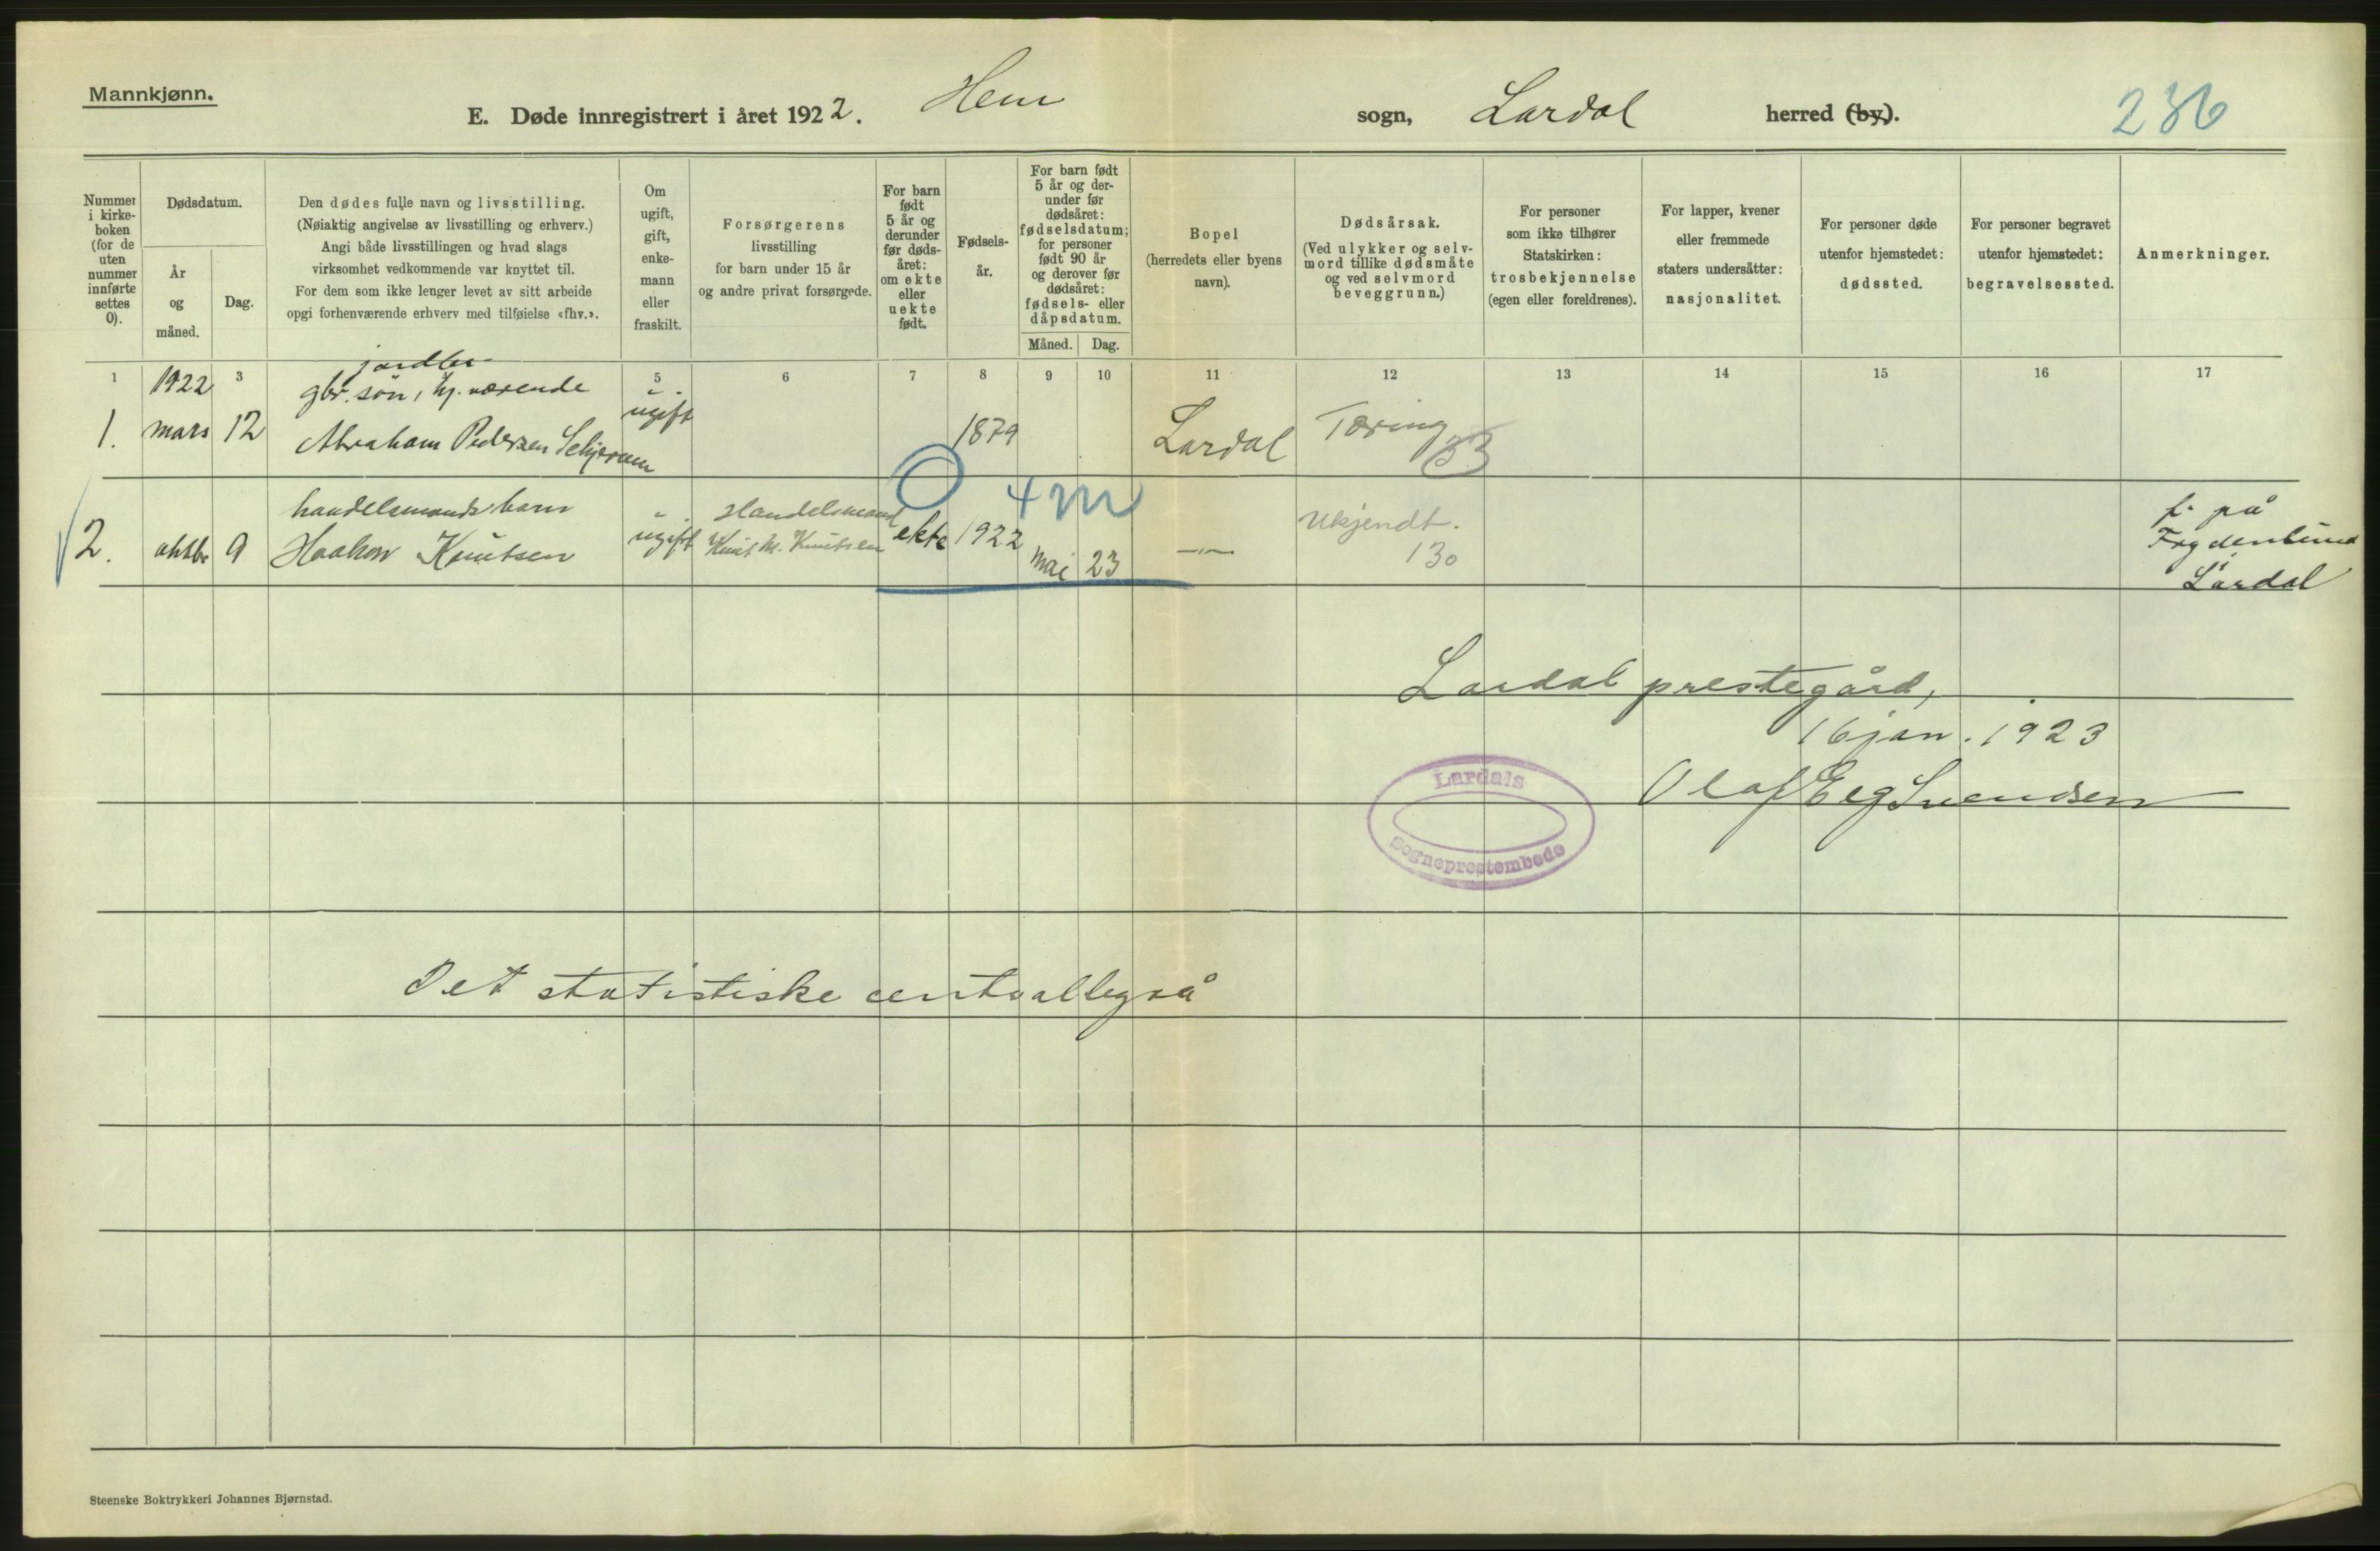 Mannkjønn.
E. Døde innregistrert i året 1922. Hem sogn, Lardal herred (by).
236
Nummer i kirke-boken (for de uten nummer innførte settes 0).
Dødsdatum.
År og måned.
Dag.
Den dødes fulle navn og livsstilling.
(Nøiaktig angivelse av livsstilling og erhverv.)
Angi både livsstillingen og hvad slags
virksomhet vedkommende var knyttet til.
For dem som ikke lenger levet av sitt arbeide
opgi forhenværende erhverv med tilføielse «fhv.».
Om ugift, gift, enke-mann eller fraskilt.
Forsørgerens
livsstilling
for barn under 15 år
og andre privat forsørgede.
For barn født 5 år og derunder før døds-året: om ekte eller uekte født.
Fødsels-år.
For barn født 5 år og der-under før dødsåret: fødselsdatum; for personer født 90 år og derover før dødsåret: fødsels- eller dåpsdatum.
Måned.
Dag.
Bopel
(herredets eller byens
navn).
Dødsårsak.
(Ved ulykker og selv-
mord tillike dødsmåte
og ved selvmord
beveggrunn.)
For personer
som ikke tilhører
Statskirken:
trosbekjennelse
(egen eller foreldrenes).
For lapper, kvener
eller fremmede
staters undersåtter:
nasjonalitet.
For personer døde
utenfor hjemstedet:
dødssted.
For personer begravet
utenfor hjemstedet:
begravelsessted.
Anmerkninger.
1 3 5 6 7 8 9 10 11 12 13 14 15 16 17
jordbr
1922 gbr. søn, hj. værende
1. mars 12 Abraham Pedersen ugift 1879 Lardal Tæring 33
0 4 m
handelsmands barn Handelsmand
2. oktbr 9 Haakon Knutsen ugift Knut M. Knutsen ekte 1922 mai 23 —"— Ukjendt. 130
f. på
Frydenlund
i Lardal
Lardal prestegård,
16 jan. 1923
Olaf Eeg Svendsen
Lardals
Sogneprestembede
Det statistiske centralbyrå
Steenske Boktrykkeri Johannes Bjørnstad.